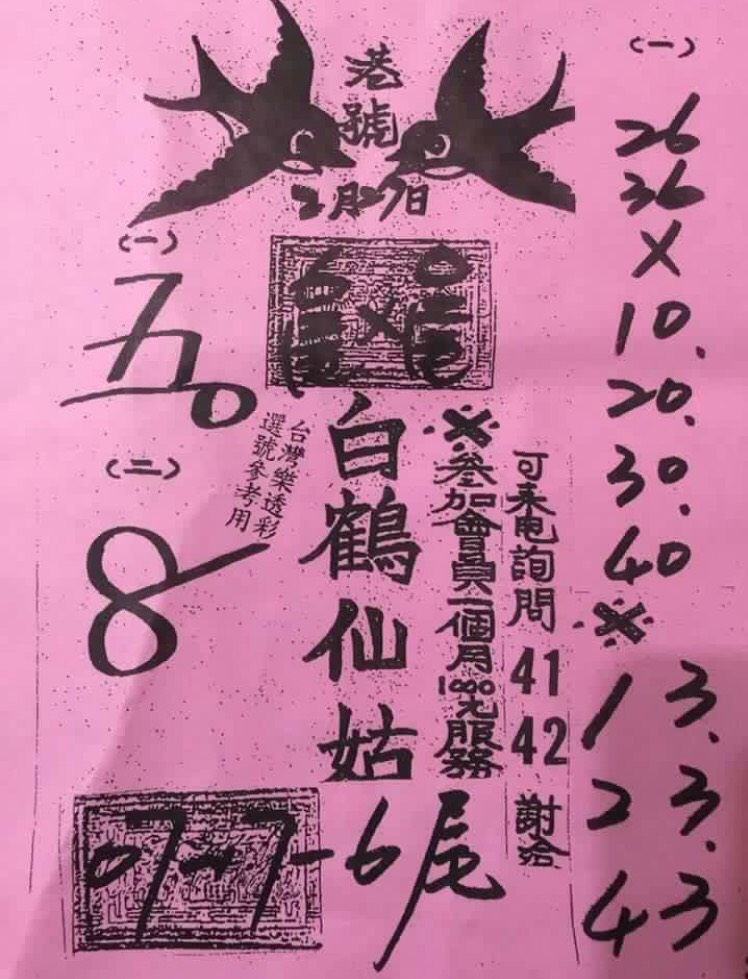 港號
2月27日
(一)
五0
(二)
8
台灣樂透彩
選號參考用
白鶴仙姑
※參加會員一個月1000元服務
可来电詢問 41 42 謝洽
07-7-6尾
(一)
26
36
X
10.
20.
30.
40
※
13.
23.
43